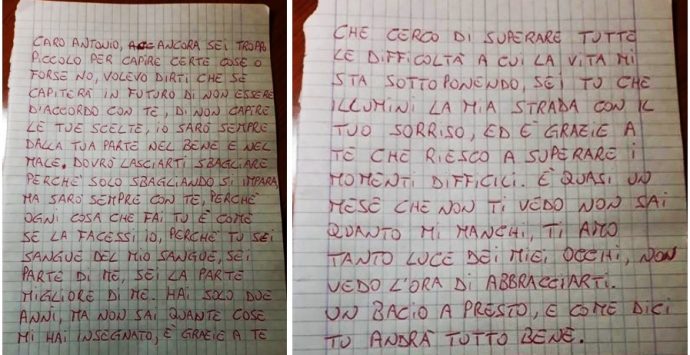 CARO ANTONIO, ANCORA SEI TROPPO
PICCOLO PER CAPIRE CERTE COSE O
FORSE NO, VOLEVO DIRTI CHE SE
CAPITERÀ IN FUTURO DI NON ESSERE
D'ACCORDO CON TE, DI NON CAPIRE
LE TUE SCELTE, IO SARÒ SEMPRE
DALLA TUA PARTE NEL BENE E NEL
MALE. DOVRÒ LASCIARTI SBAGLIARE
PERCHÈ SOLO SBAGLIANDO SI IMPARA
MA SARÒ SEMPRE CON TE, PERCHÈ
OGNI COSA CHE FAI TU È COME
SE LA FACESSI IO, PERCHÈ TU SEI
SANGUE DEL MIO SANGUE, SEI
PARTE DI ME, SEI LA PARTE
MIGLIORE DI ME. HAI SOLO DUE
ANNI, MA NON SAI QUANTE COSE
MI HAI INSEGNATO, È GRAZIE A TE
CHE CERCO DI SUPERARE TUTTE
LE DIFFICOLTÀ A CUI LA VITA MI
STA SOTTOPONENDO, SEI TU CHE
ILLUMINI LA MIA STRADA CON IL
TUO SORRISO, ED È GRAZIE A
TE CHE RIESCO A SUPERARE I
MOMENTI DIFFICILI. È QUASI UN
MESE CHE NON TI VEDO NON SAI
QUANTO MI MANCHI, TI AMO
TANTO LUCE DEI MIEI OCCHI, NON
VEDO L'ORA DI ABBRACCIARTI.
UN BACIO A PRESTO, E COME DICI
TU ANDRÀ TUTTO BENE.